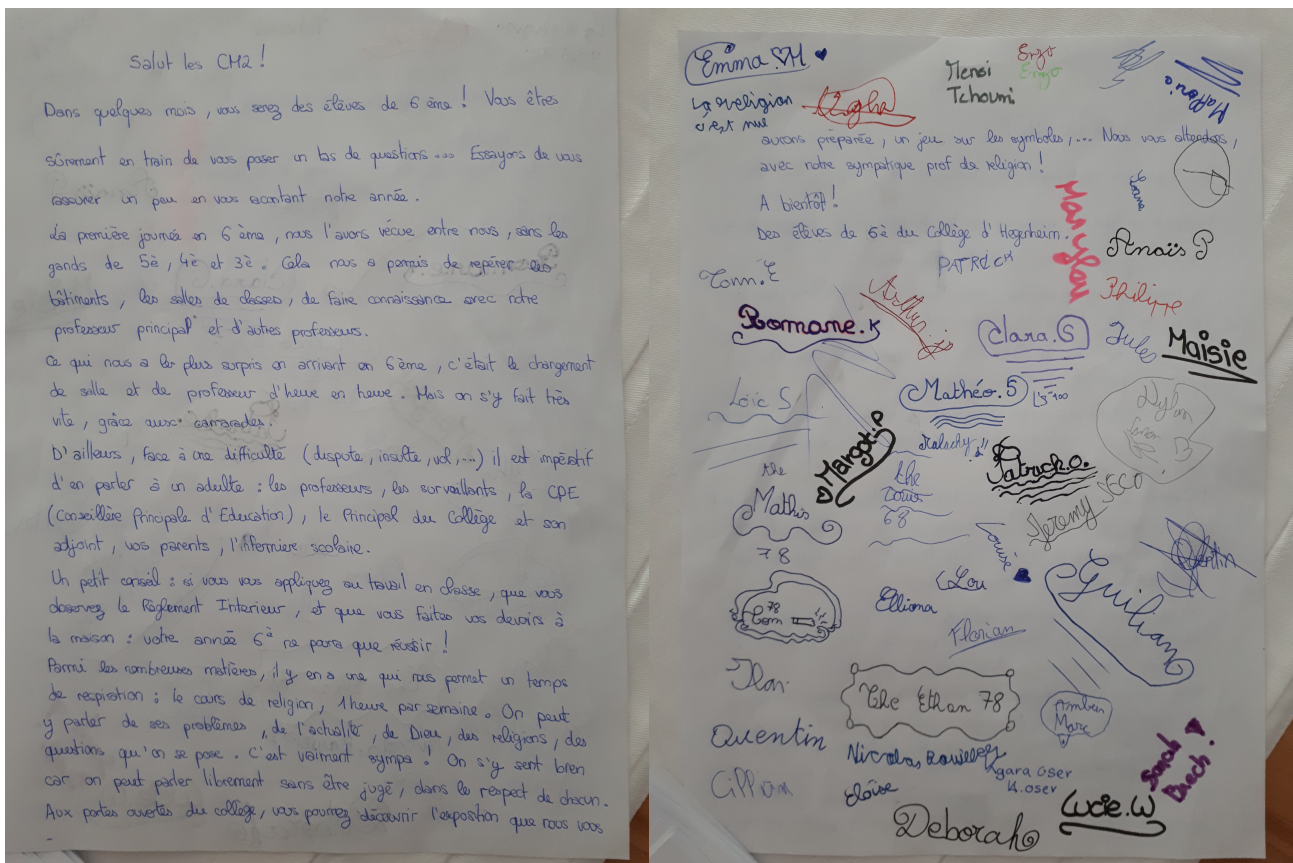 Salut les CM2 !
Dans quelques mois, vous serez des élèves de 6 ème ! Vous êtres
sûrement en train de vous poser un tas de questions ... Essayons de vous
rassurer un peu en vous racontant notre année.
La première journée en 6 ème, nous l'avons vécue entre nous, sans les
gands de 5è, 4è et 3è. Cela nous a permis de repérer les
bâtiments, les salles de classes, de faire connaissance avec notre
professeur principal et d'autres professeurs.
Ce qui nous a le plus surpris en arrivant en 6 ème, c'était le changement
de salle et de professeur d'heure en heure. Mais on s'y fait très
vite, grâce aux camarades.
D'ailleurs, face à une difficulté (dispute, insulte, vol,...) il est impératif
d'en parler à un adulte : les professeurs, les surveillants, la CPE
(Conseillère Principale d'Education), le Principal du Collège et son
adjoint, vos parents, l'infirmière scolaire.
Un petit conseil : si vous vous appliquez au travail en classe, que vous
observez le Règlement Interieur, et que vous faites vos devoirs à
la maison : votre année 6è ne pourra que réussir !
Parmi les nombreuses matières, il y en a une qui nous permet un temps
de respiration : le cours de religion, 1 heure par semaine. On peut
y parler de ses problèmes, de l'actualité, de Dieu, des religions, des
questions qu'on se pose. C'est vraiment sympa ! On s'y sent bien
car on peut parler librement sans être jugé, dans le respect de chacun.
Aux portes ouvertes du collège, vous pourrez découvrir l'exposition que nous vous
Emma.M
Enzo
Enzo
Mensi
Tchoumi
La religion
c'est
aurons préparée, un jeu sur les symboles,... Nous vous attendons,
avec notre sympatique prof de religion !
A bientôt !
Des élèves de 6è du Collège d'Hegenheim.
PATRICK
Marylou
Anaïs P
Tom.E
Arthur
Philippe
Romane.K
Clara.S
Jules
Maisie
Loïc S
Mathéo.S
Dylan
B
Margot.P
the
Mathis
78
the
68
Patrick.O.
Jeremy
Louise
Quentin
78
Tom
Elliona
Lou
Guilian
Florian
Ilan
The Ethan 78
Amber
Marc
Quentin
Niccolas
Sarah
K.oser
Eloïse
Lucie.W
Deborah